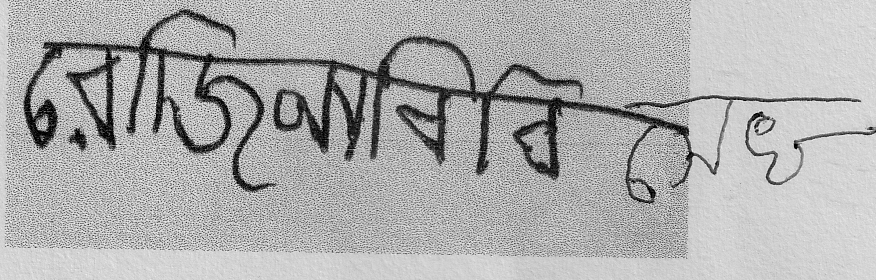 রেজিনা বিবি সেখ